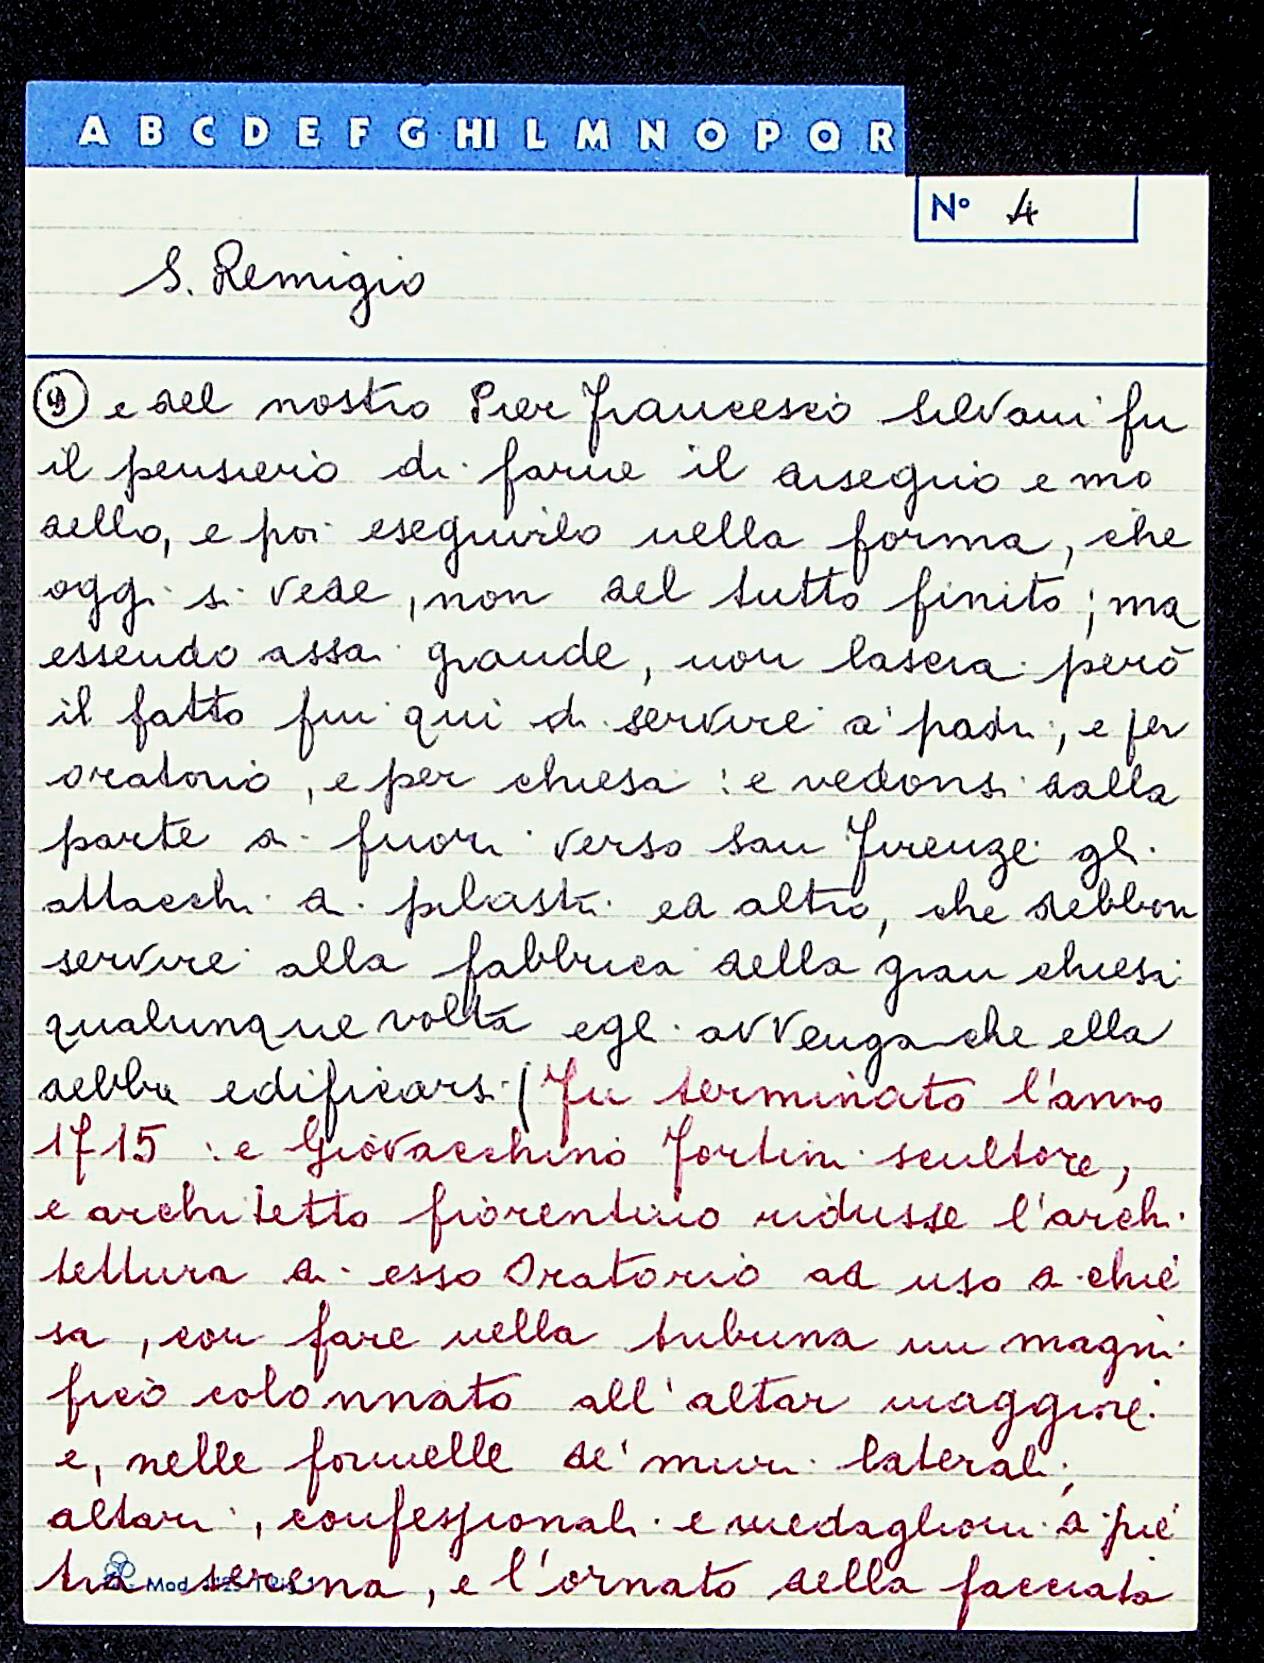 A B C D E F G HI L M N O P Q R
N° 4
S. Remigio
⑨ e del nostro Pier Francesco Silvani fu
il pensiero di farne il disegno e mo
dello, e poi eseguirlo nella forma, che
oggi si vede, non del tutto finito; ma
essendo assai grande, non lascia però
il fatto fin qui di servire a' padri, e per
oratorio, e per chiesa: e vedonsi dalla
parte di fuori verso San Firenze gli
attacchi di pilastri ed altro, che debbon
servire alla fabbrica della gran chiesa
qualunque volta egli avvenga che ella
debba edificarsi (Fu terminato l'anno
1715: e Giovacchino Fortini scultore,
e architetto fiorentino ridusse l'archi
tettura di esso Oratorio ad uso di chie
sa, con fare nella tribuna un magni
fico colonnato all'altar maggiore
e, nelle formelle de' muri laterali,
altari, confessionali e medaglioni di pie
tra serena, e l'ornato della facciata
Mod